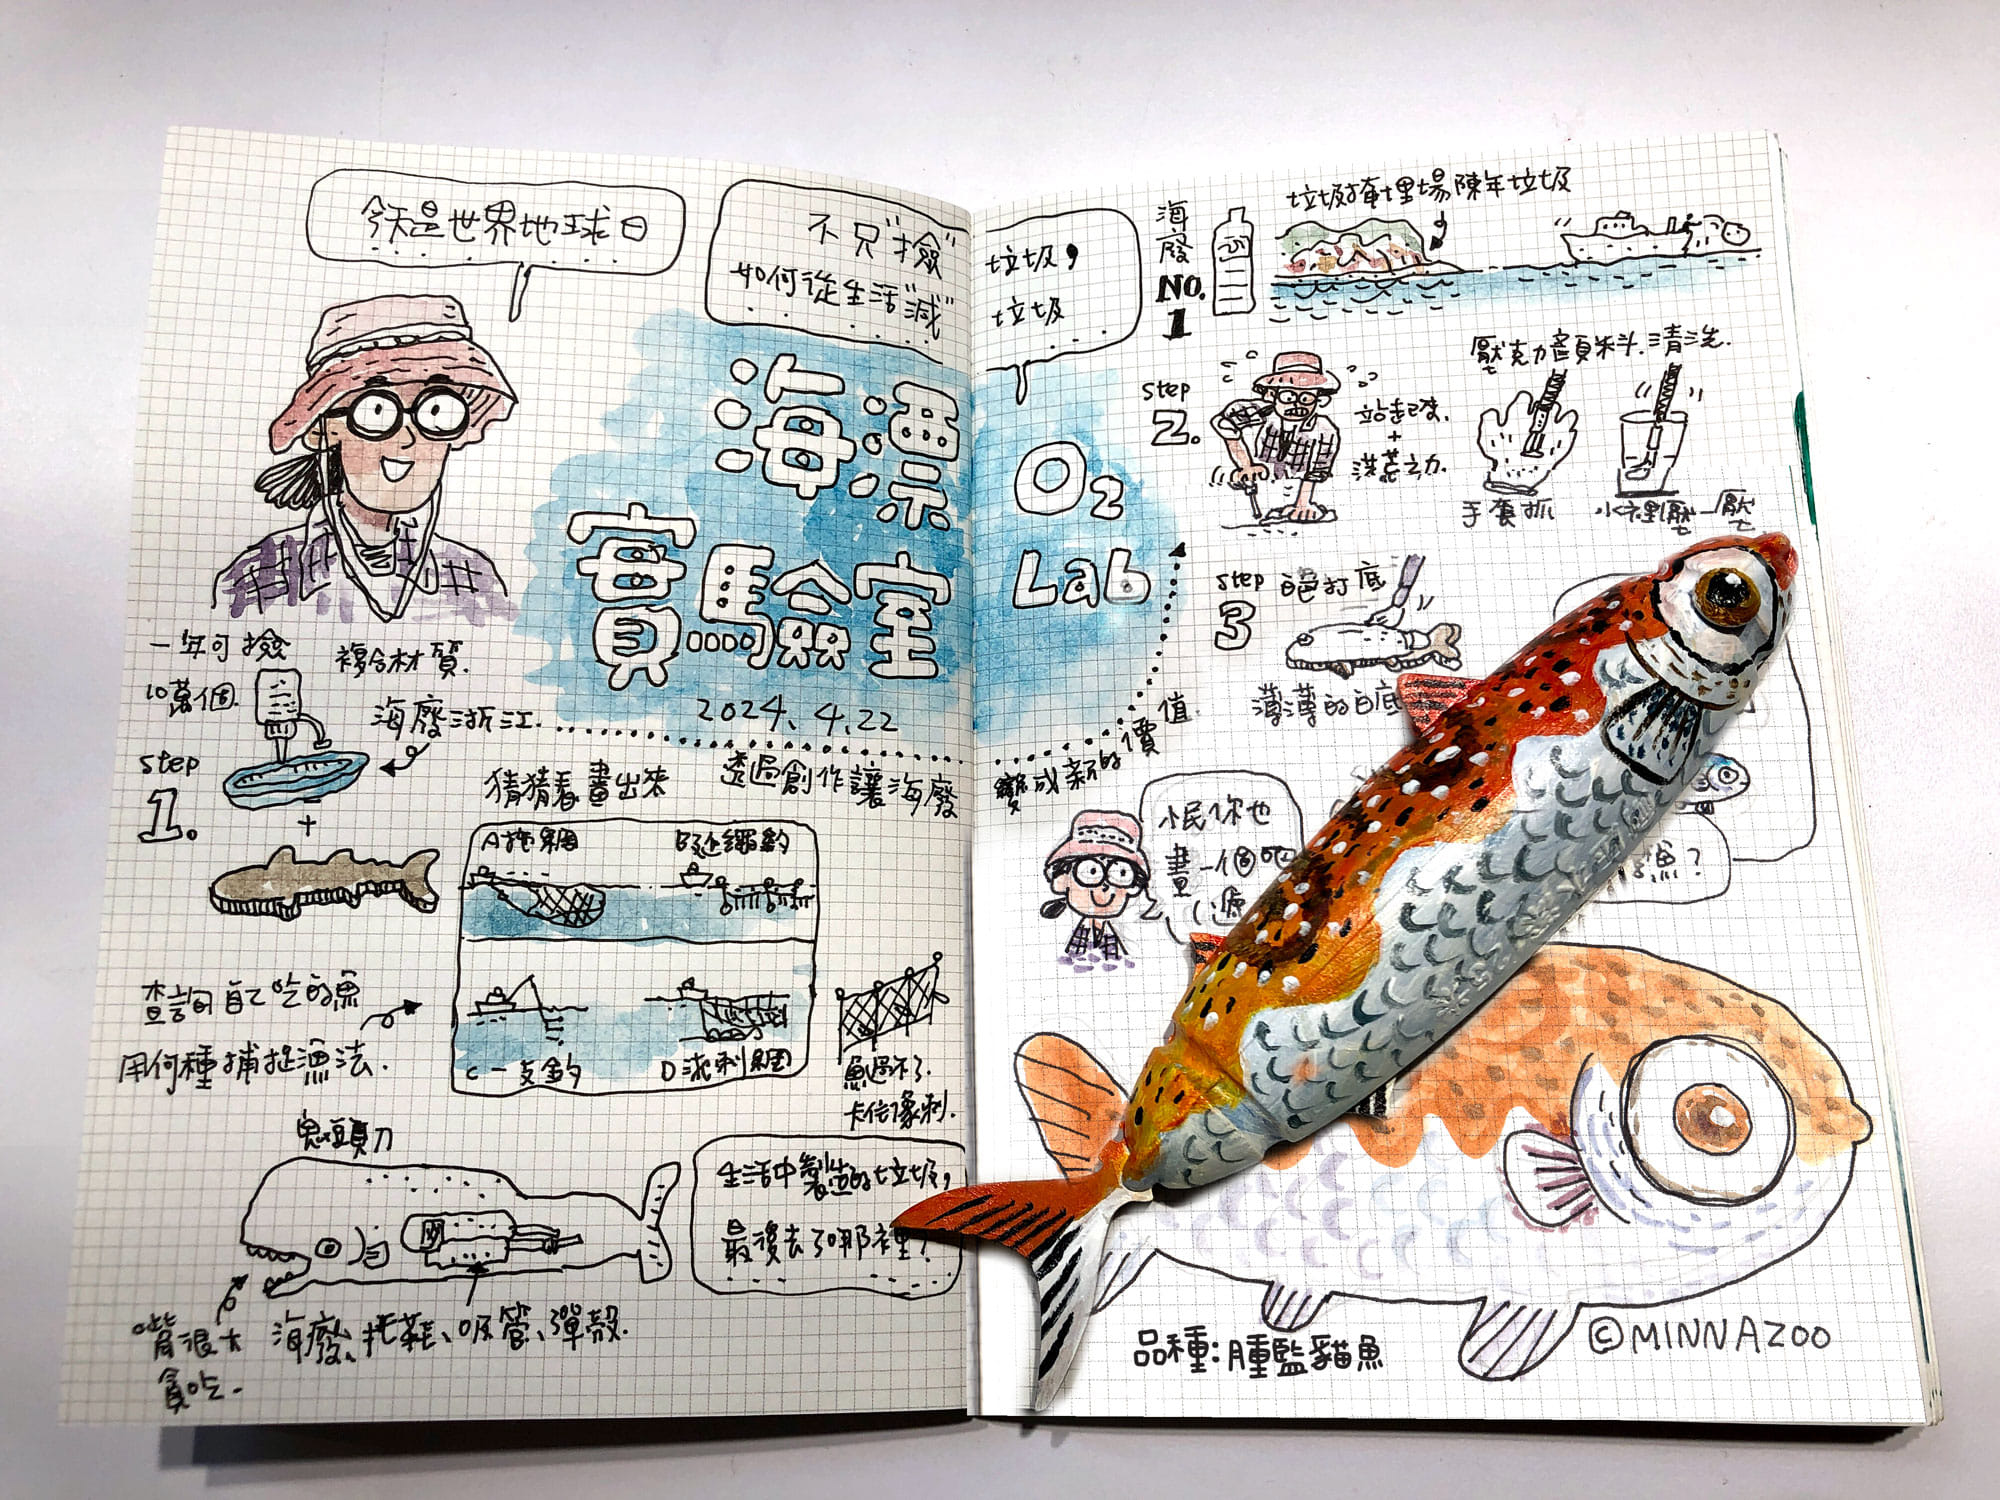 今天是世界地球日
不只"撿"垃圾，
如何從生活"減"垃圾
海漂
實驗室
O2
Lab
2024.4.22
一年可撿
10萬個.
複合材質.
海廢浙江.
step
1.
+
猜猜看畫出來
透過創作讓海廢
變成新的價值.
A拖網
B延繩釣
C一支釣
D流刺網
查詢自己吃的魚
用何種捕捉漁法.
魚過不了.
卡住像刺.
鬼頭刀
嘴很大
貪吃.
海廢、拖鞋、吸管、彈殼.
生活中製造的垃圾，
最後去了哪裡？
海廢
NO.
1
垃圾掩埋場陳年垃圾
step
2.
站起來.
+
洪荒之力.
壓克力顏料.清洗.
手套抓
水裡壓一壓
step
3
白色打底
薄薄的白底
小民你也
畫一個吧
魚？
品種:腫監貓魚
©MINNAZOO